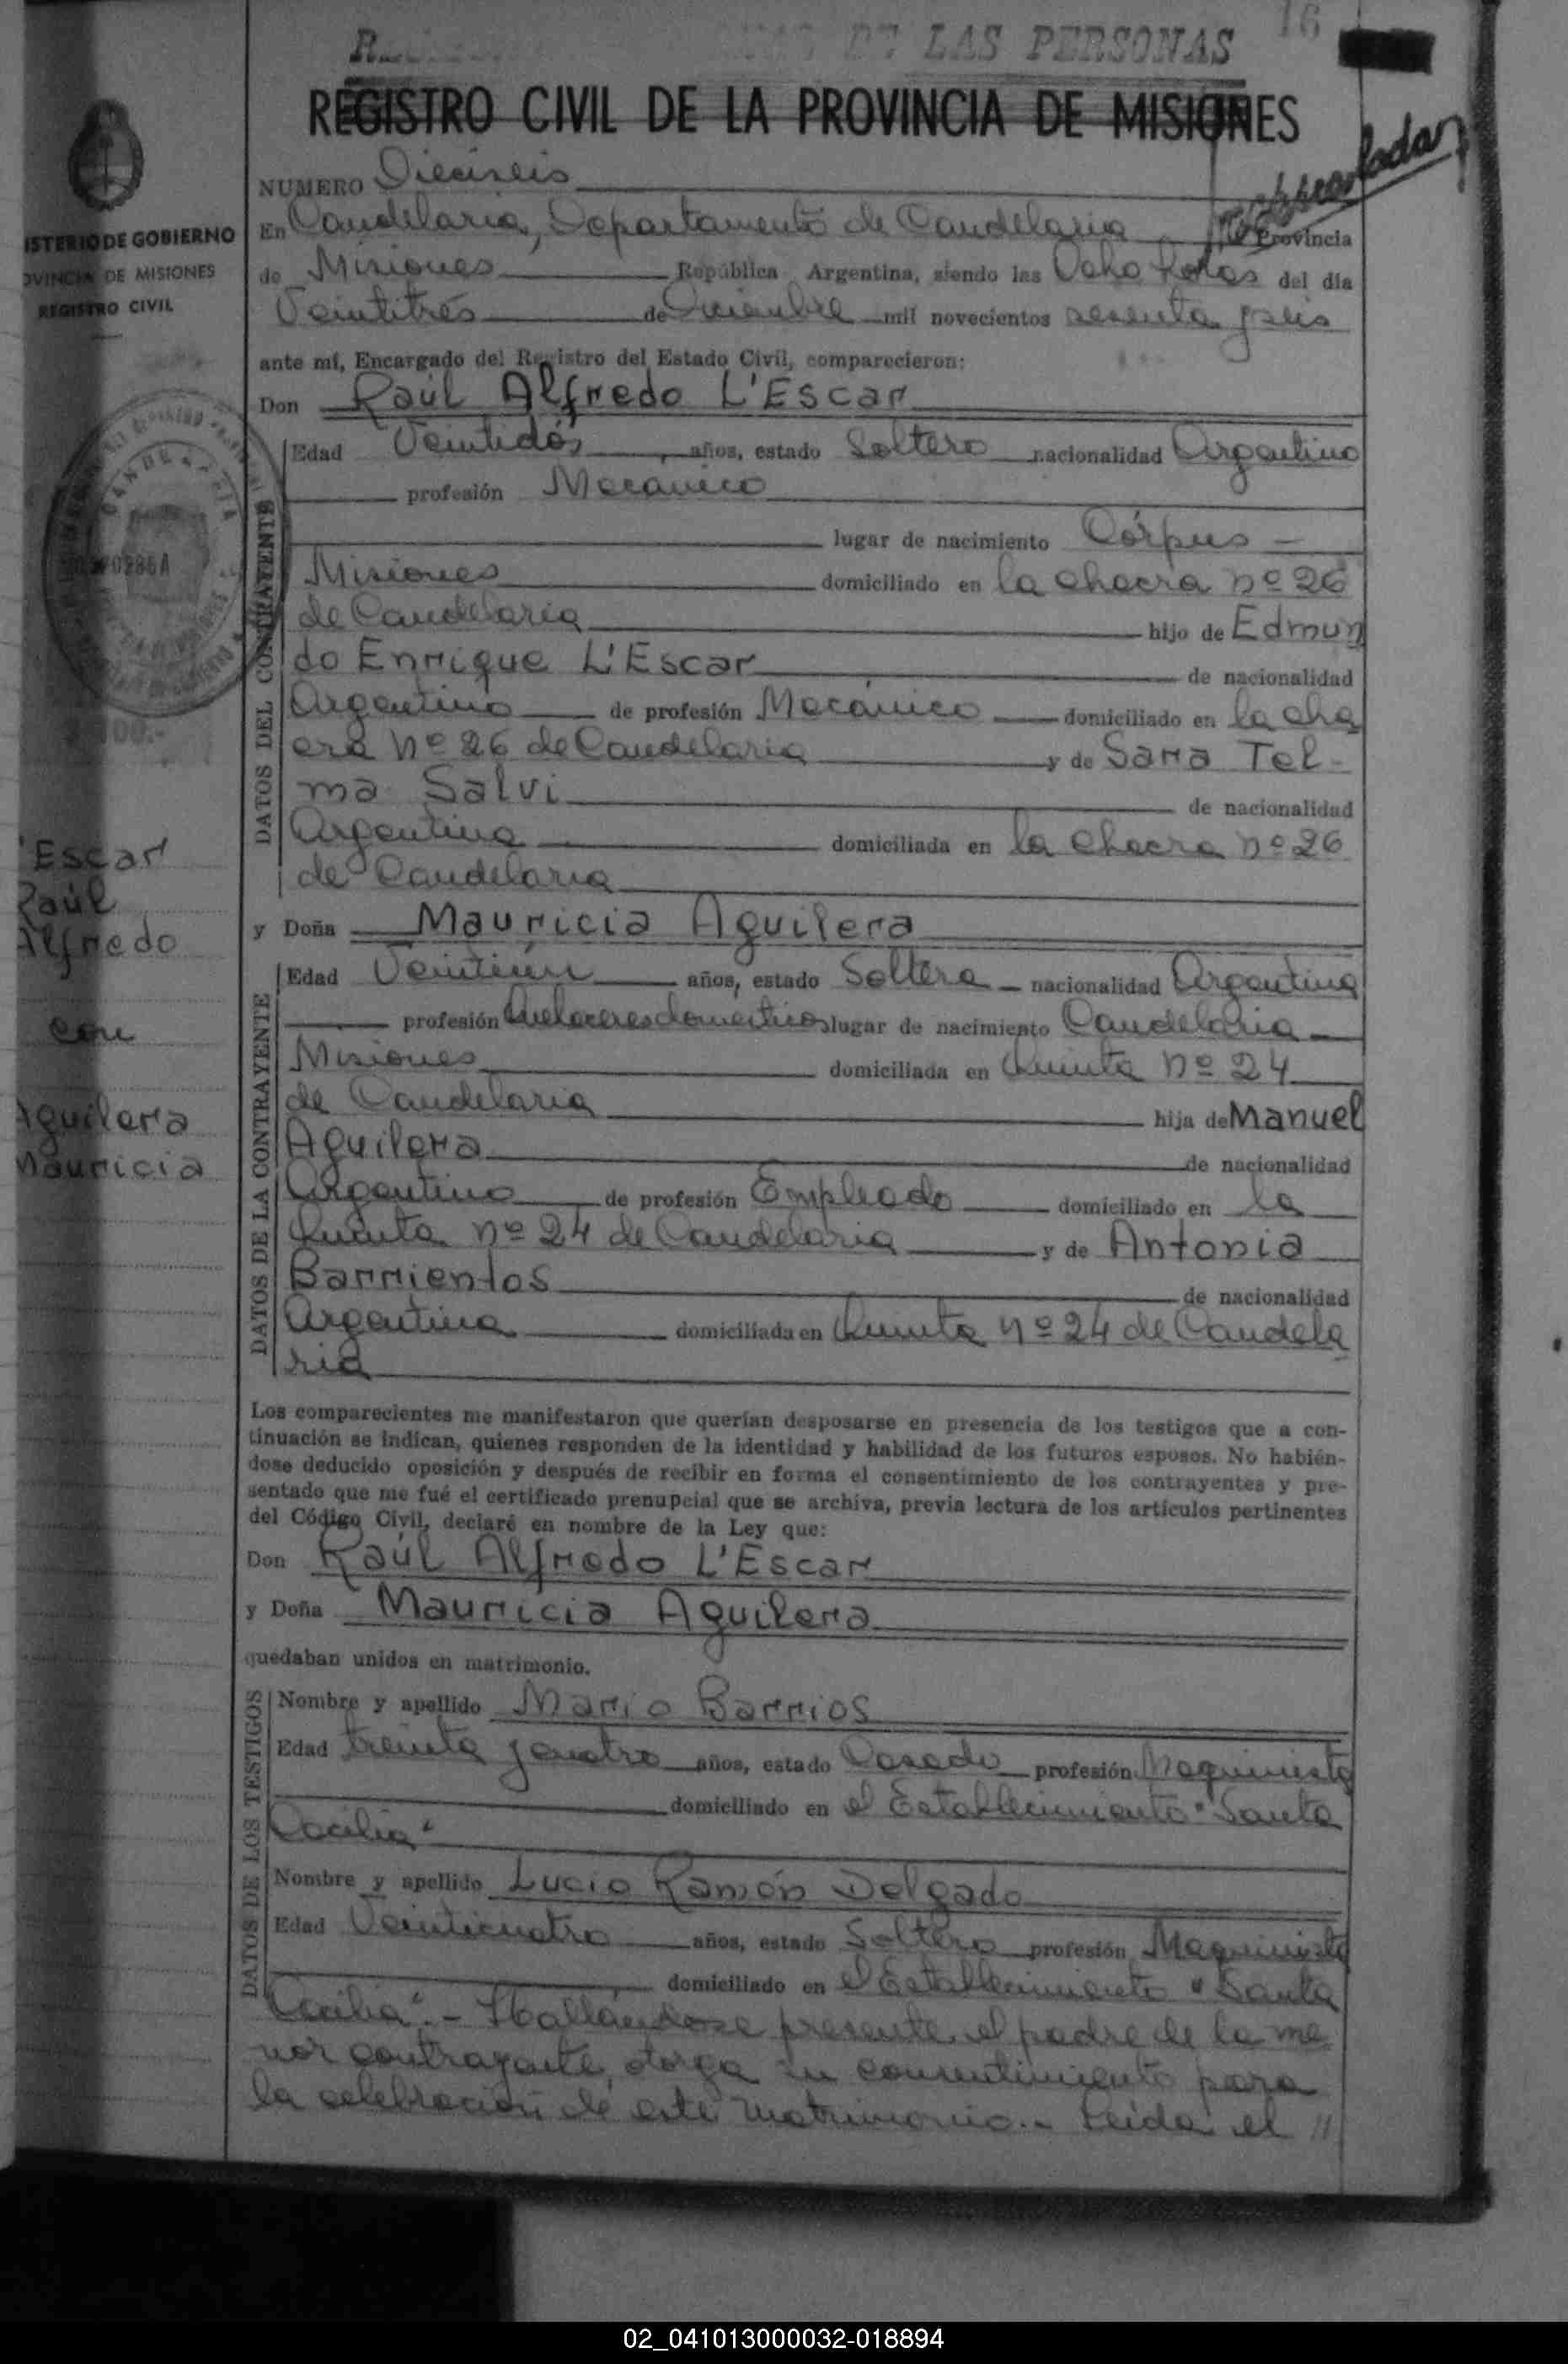 16
DE LAS PERSONAS
REGISTRO CIVIL DE LA PROVINCIA DE MISIONES
ISTERIO DE GOBIERNO
OVINCIA DE MISIONES
REGISTRO CIVIL
NUMERO Dieciseis
En Candelaria, Departamento de Candelaria Provincia
de Misiones República Argentina, siendo las Ocho horas del día
Veintitrés de Diciembre mil novecientos sesenta y seis
ante mí, Encargado del Registro del Estado Civil, comparecieron:
Don Raúl Alfredo L'Escar
DATOS DEL CONTRAYENTE
Edad Veintidós, años, estado Soltero nacionalidad Argentino
profesión Mecánico
lugar de nacimiento Córpus -
Misiones domiciliado en la chacra nº 26
de Candelaria hijo de Edmun
do Enrique L'Escar de nacionalidad
Argentino de profesión Mecánico domiciliado en la cha
cra nº 26 de Candelaria y de Sara Tel-
ma Salvi de nacionalidad
Argentina domiciliada en la chacra nº 26
de Candelaria
'Escar
Raúl
Alfredo
con
Aguilera
Mauricia
y Doña Mauricia Aguilera
DATOS DE LA CONTRAYENTE
Edad Veintiún años, estado Soltera nacionalidad Argentina
profesión Quehaceres domésticos lugar de nacimiento Candelaria
Misiones domiciliada en Quinta nº 24
de Candelaria hija de Manuel
Aguilera de nacionalidad
Argentino de profesión Empleado domiciliado en la
Quinta nº 24 de Candelaria y de Antonia
Barrientos de nacionalidad
Argentina domiciliada en Quinta nº 24 de Candela
ria
Los comparecientes me manifestaron que querían desposarse en presencia de los testigos que a con-
tinuación se indican, quienes responden de la identidad y habilidad de los futuros esposos. No habién-
dose deducido oposición y después de recibir en forma el consentimiento de los contrayentes y pre-
sentado que me fué el certificado prenupcial que se archiva, previa lectura de los artículos pertinentes
del Código Civil, declaré en nombre de la Ley que:
Don Raúl Alfredo L'Escar
y Doña Mauricia Aguilera
quedaban unidos en matrimonio.
DATOS DE LOS TESTIGOS
Nombre y apellido Mario Barrios
Edad treinta y cuatro años, estado Casado profesión Maquinista
domiciliado en el Establecimiento "Santa
Cecilia"
Nombre y apellido Lucio Ramón Delgado
Edad Veinticuatro años, estado Soltero profesión Maquinista
domiciliado en el Establecimiento "Santa
Cecilia".- Hallándose presente el padre de la me
nor contrayente, otorga su consentimiento para
la celebración de este matrimonio.- Leída el //
02_041013000032-018894